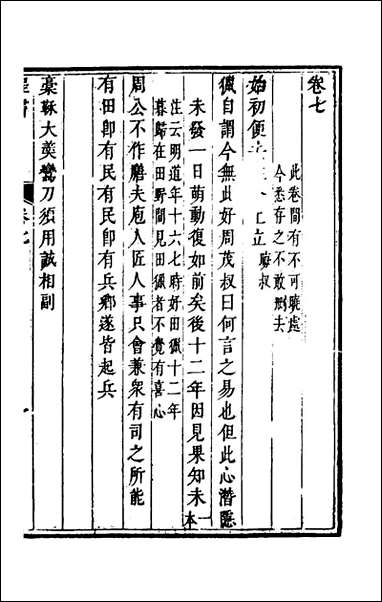 卷七
此卷間有不可曉處
今悉存之不敢刪去
始初便去
立廢叔
獵自謂今無此好周茂叔曰何言之易也但此心潛隱
未發一日萌動復如前矣後十二年因見果知未一本
注云明道年十六七時好田獵十二年
暮歸在田野間見田獵者不覺有喜心
周公不作膳夫庖人匠人事只會兼衆有司之所能
有田卽有民有民卽有兵鄉遂皆起兵
稾鞂大羹鸞刀須用誠相副
卷七